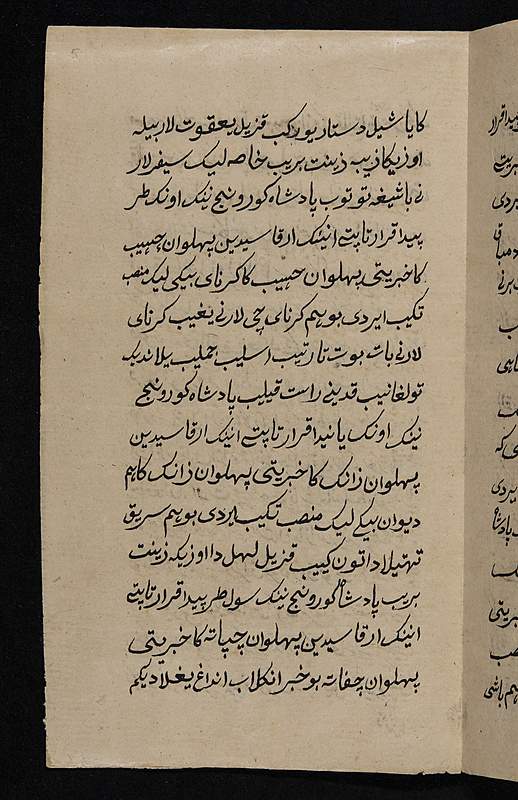 کا یاشیل دستار یورکب قزیل یعقوت لار بیله
اوزیکا زیبه زینت بریب خاصه لیک سیفرلار
نی باشیغه توتوب پادشاه کورونیج نینک اونک طر
پیدا قرار تاپتے انینک ارقا سیدین پهلوان حبیب
کا خبر یتی پهلوان حبیب کا کرنای بیکی لیک منصب
تکیب ایردی بو هم کرنای چی لارنے یغیب کرنای
لارنے بات بوت تارتیب اسلیب جملیب یلاندیک
تولغانیب قدینے راست قیلیب پادشاه کورونیج
نینک اونک یانیدا قرار تاپتے انینک ارقا سیدین
پهلوان زانک کا خبر یتی پهلوان زانک کا هم
دیوان بیکے لیک منصب تکیب ایردی بو هم سریق
تهتیلا داتون کییب قزیل لهل دا اوزیکه زینت
بریب پادشاه کورونیج نینک سول طرپیدا قرار تاپتے
انینک ارقا سیدین پهلوان چپاته کا خبر یتی
پهلوان چفاته بو خبر انکلاب انداغ یغلادیکم